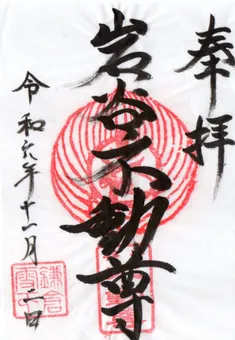 奉拝
岩谷不動尊
令和六年十一月二日
鎌倉
雪ノ下